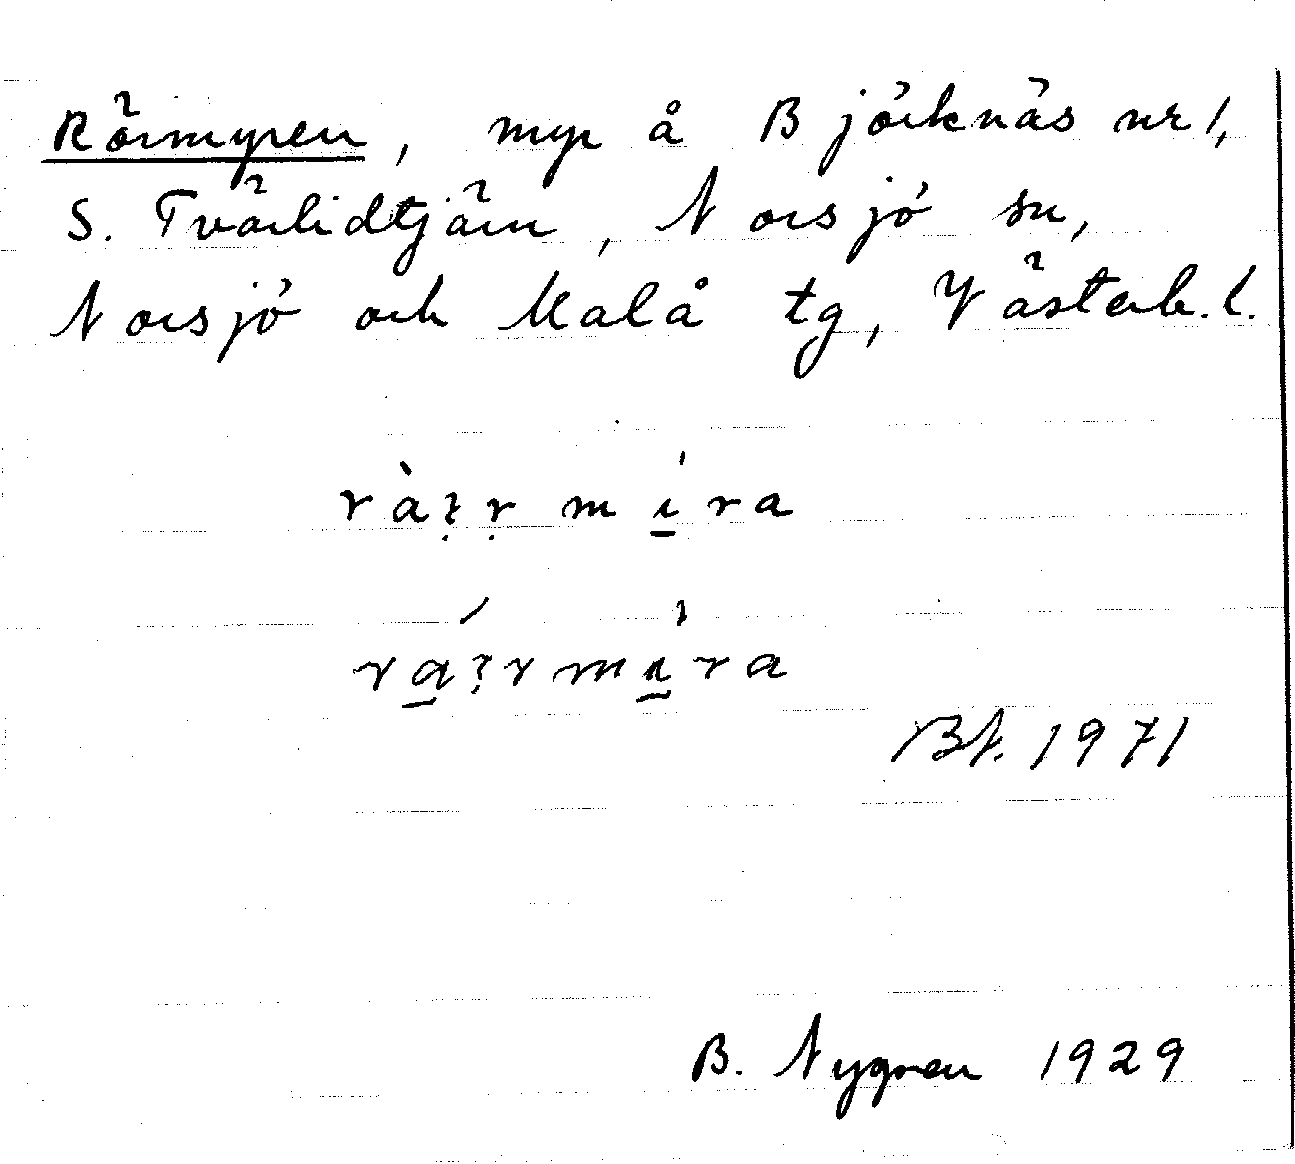 Rörmyren, myr å Björknäs nr 1,
S. Tvärlidtjärn, Norsjö sn,
Norsjö och Malå tg, Västerb. l.
Bt. 1971
B. Nygren 1929